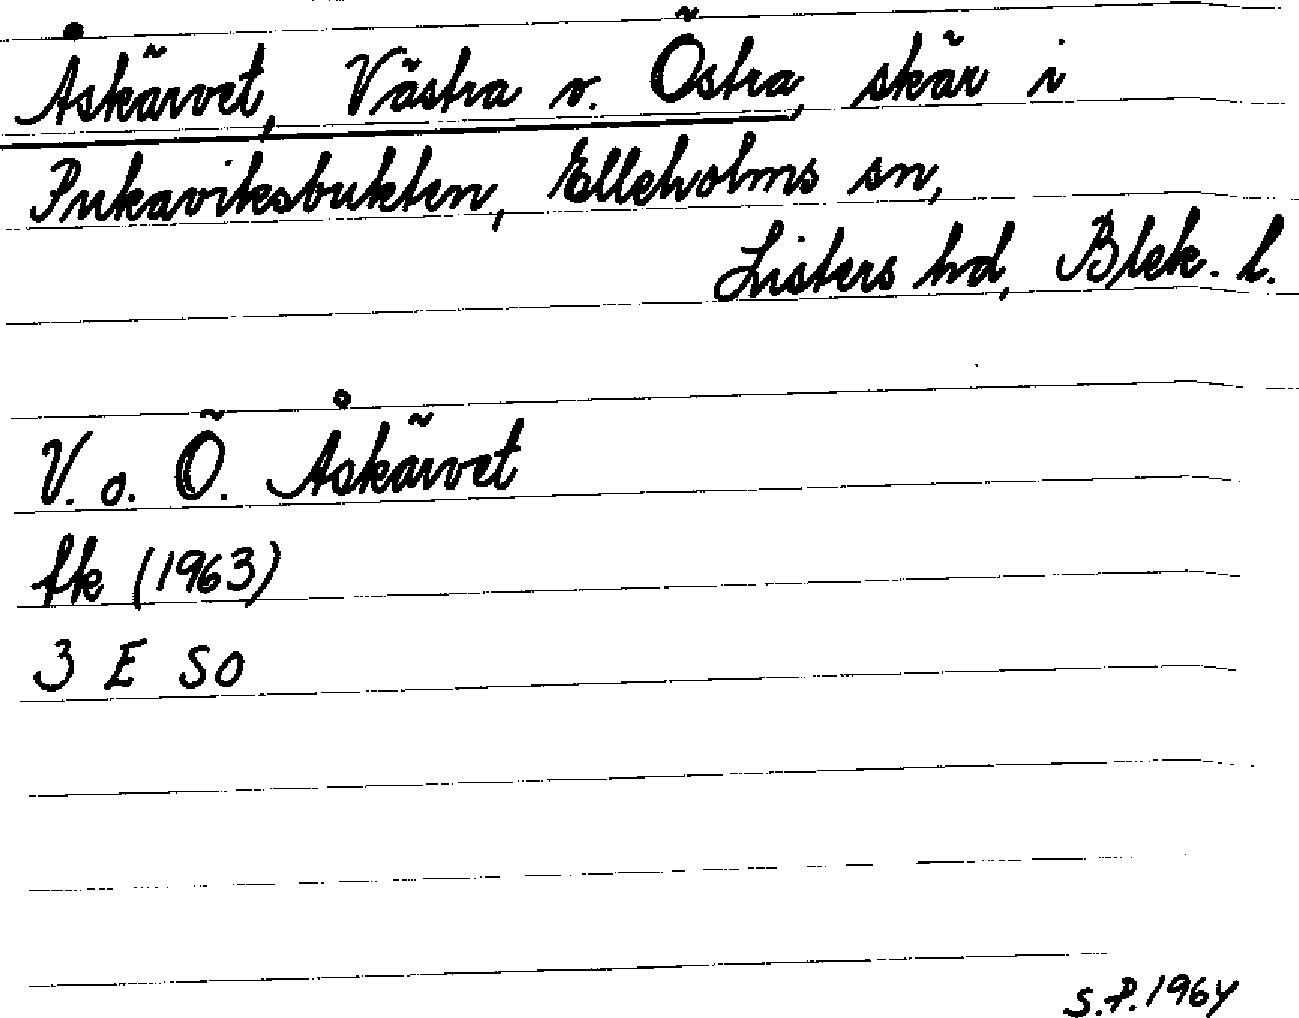 Åskärvet, Västra o. Östra, skär i
Pukaviksbukten, Elleholms sn,
Listers hd, Blek. l.
V. o. Ö. Åskärvet
fk (1963)
3 E SO
S.P. 1964